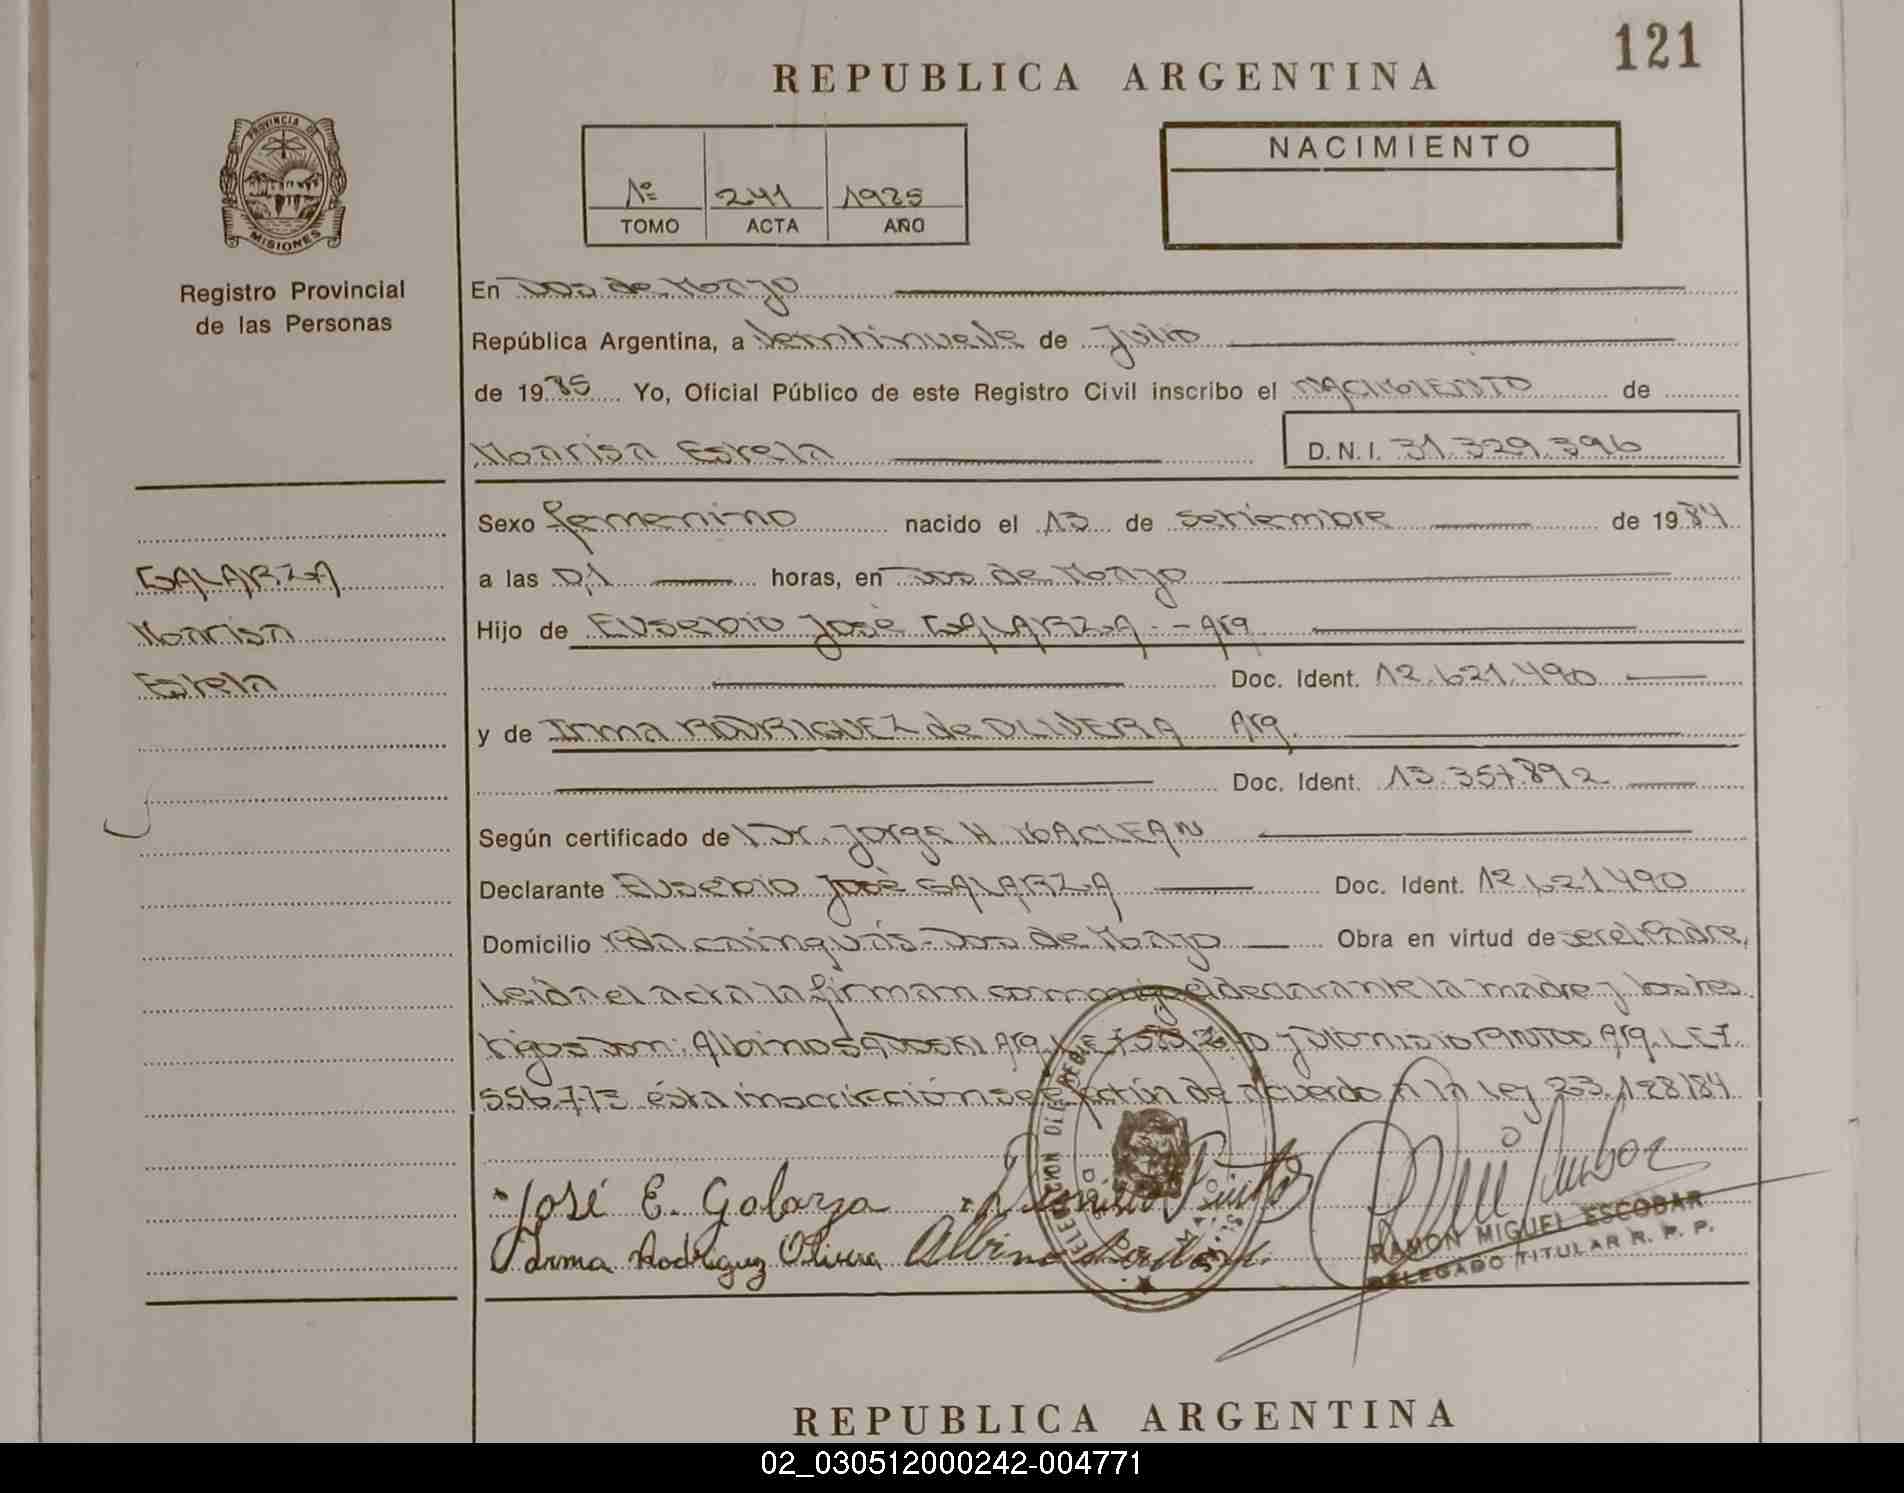 121
REPUBLICA ARGENTINA
PROVINCIA DE
MISIONES
Registro Provincial
de las Personas
1º 241 1985
TOMO ACTA AÑO
NACIMIENTO
En Dos de Mayo
República Argentina, a veintinueve de Julio
de 1985 Yo, Oficial Público de este Registro Civil inscribo el NACIMIENTO de
Marisa Estela D.N.I. 31.329.396
Sexo femenino nacido el 13 de setiembre de 1984
GALARZA
Marisa
Estela
a las 01 horas, en Dos de Mayo
Hijo de Eusebio José GALARZA - - Arg
Doc. Ident. 12.621.490
y de Irma RODRIGUEZ de OLIVERA Arg.
Doc. Ident. 13.357.892
Según certificado de Dr. Jorge H. MACLEAN
Declarante Eusebio José GALARZA Doc. Ident. 12.621.490
Domicilio Pda cainguás - Dos de Mayo Obra en virtud de ser el Padre,
Leida el acta la firman conmigo el declarante la madre y los tes
tigos Don: Albino Arg. y Dionisio PINTOS Arg. L.E 7.
556.773 ésta inscripción se efectúa de acuerdo a la Ley 23.128/84
José E. Galarza Dionisio Pintos
Irma Rodriguez Olivera Albino
RAMON MIGUEL ESCOBAR
DELEGADO TITULAR R. P. P.
REPUBLICA ARGENTINA
02_030512000242-004771